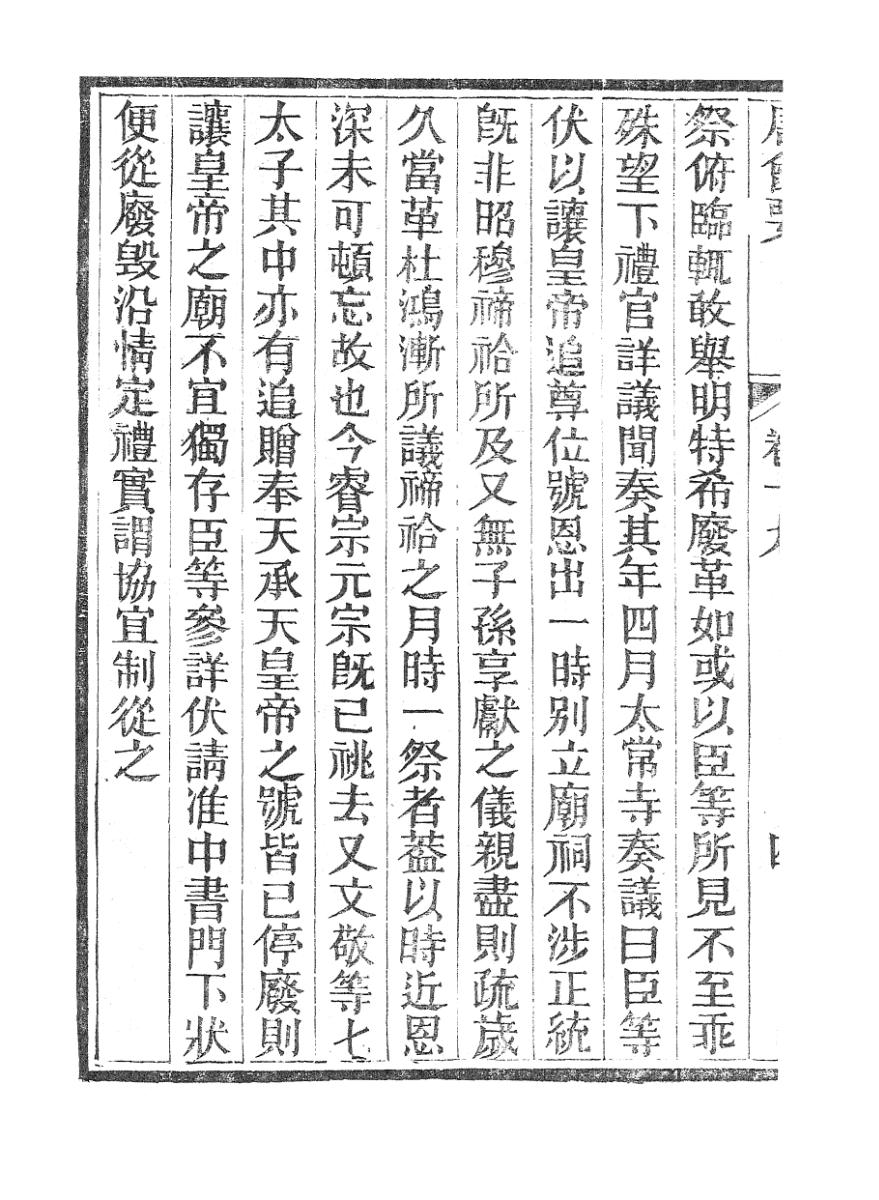 唐會要 卷十九 四
祭俯臨輒敢舉明特希廢革如或以臣等所見不至乖
殊望下禮官詳議聞奏其年四月太常寺奏議曰臣等
伏以讓皇帝追尊位號恩出一時别立廟祠不涉正統
旣非昭穆禘祫所及又無子孫享獻之儀親盡則疏歲
久當革杜鴻漸所議禘祫之月時一祭者葢以時近恩
深未可頓忘故也今睿宗元宗旣已祧去又文敬等七
太子其中亦有追贈奉天承天皇帝之號皆已停廢則
讓皇帝之廟不宜獨存臣等參詳伏請准中書門下狀
便從廢毁沿情定禮實謂協宜制從之